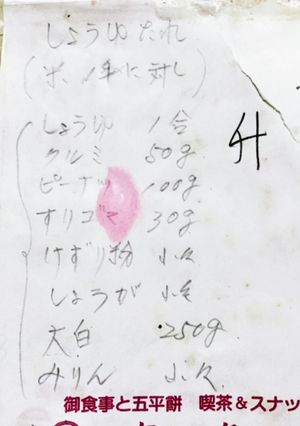 しょうゆたれ
(米1升に対し)
升
しょうゆ 1合
クルミ 50g
ピーナツ 100g
すりゴマ 30g
けずり粉 小々
しょうが 小々
太白 250g
みりん 小々
御食事と五平餅 喫茶&スナッ